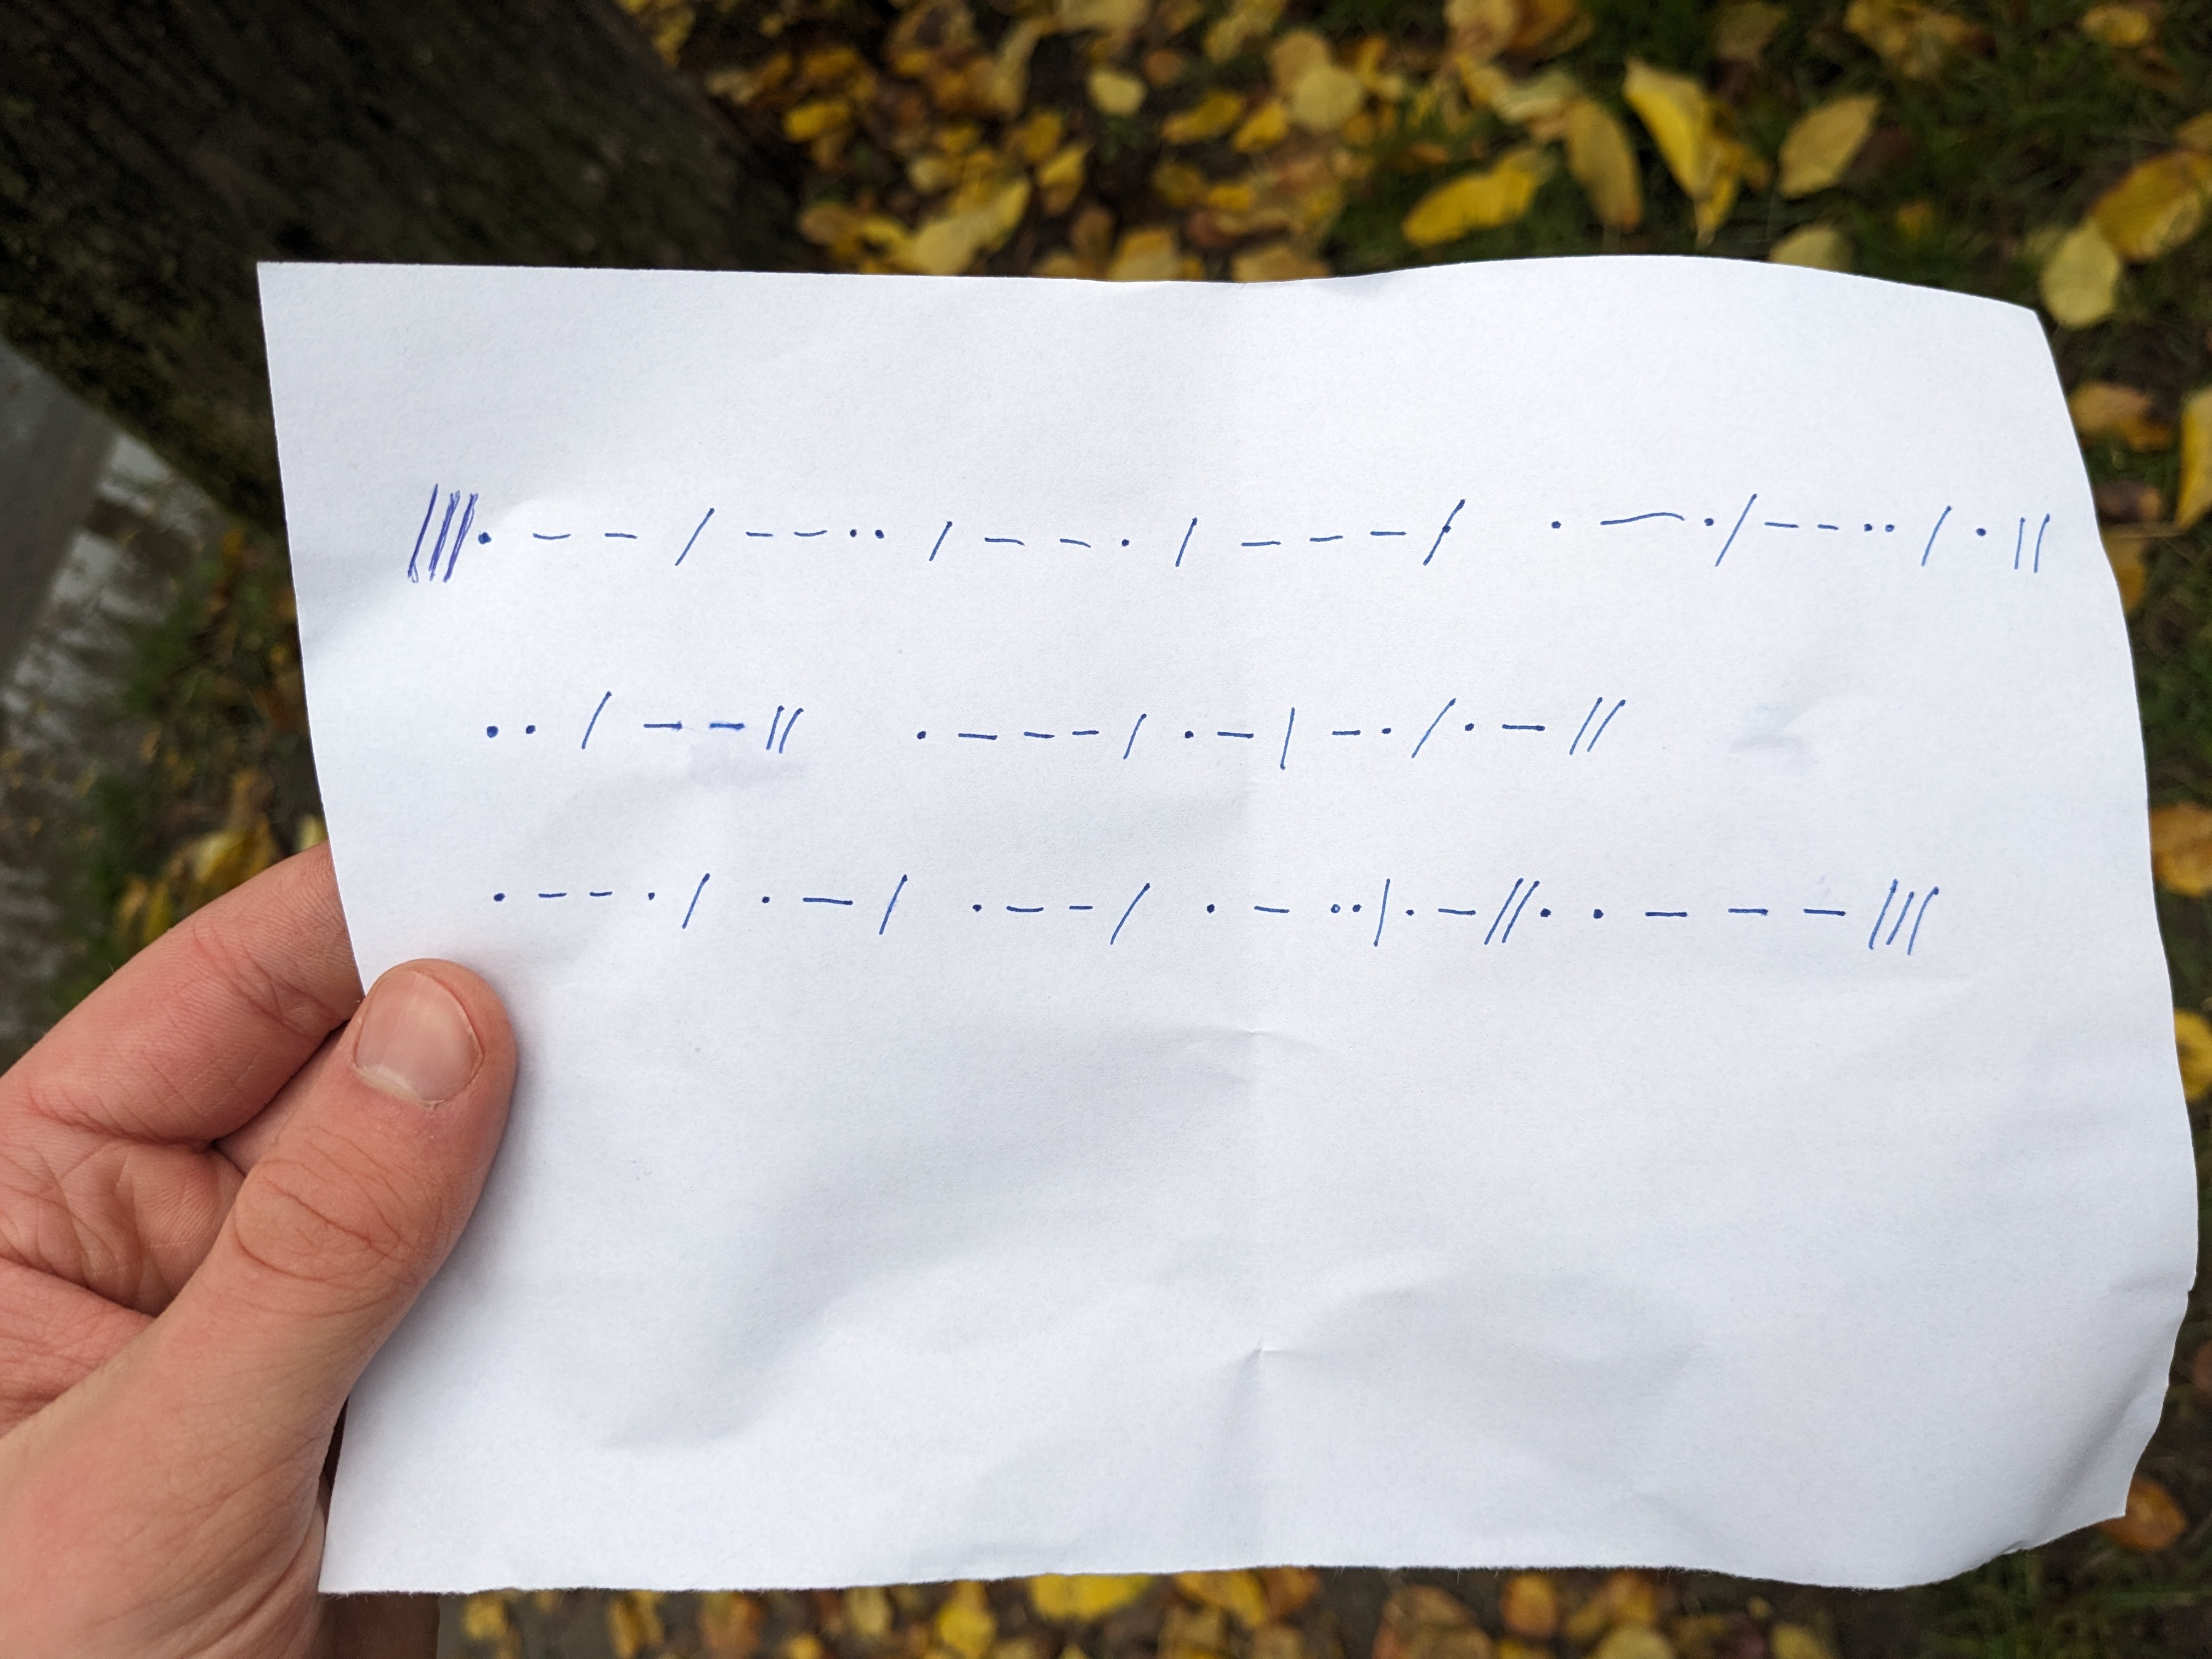 |||. _ _ _ / _ _ . . / _ _ . / _ _ _ / . _ . / _ _ . . / . ||
. . / _ _ || . _ _ _ / . _ | _ . / . _ //
. _ _ . / . _ / . _ _ / . _ . . | . _ // . . _ _ _ |||